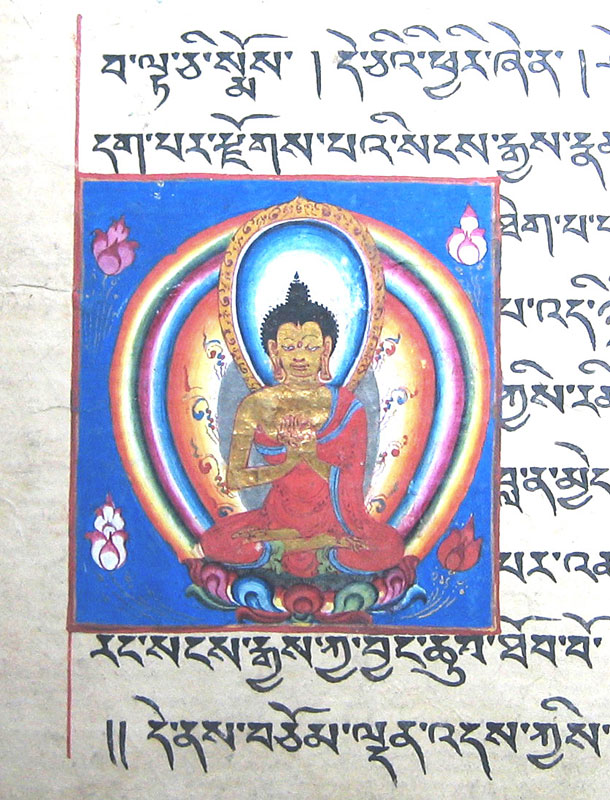 བ་ལྟ་ཅི་སྨོས་ ། དེ་ཅིའི་ཕྱིར་ཞེ་ན་ །
དག་པར་རྫོགས་པའི་སངས་རྒྱས་
ཐེག་པ་
པ་འདི་
ཀྱིས་
བླ་ན་མྱེད
པར་
རང་སངས་རྒྱས་ཀྱི་བྱང་ཆུབ་ཐོབ་བོ་
།། དེ་ནས་བཅོམ་ལྡན་འདས་ཀྱིས་